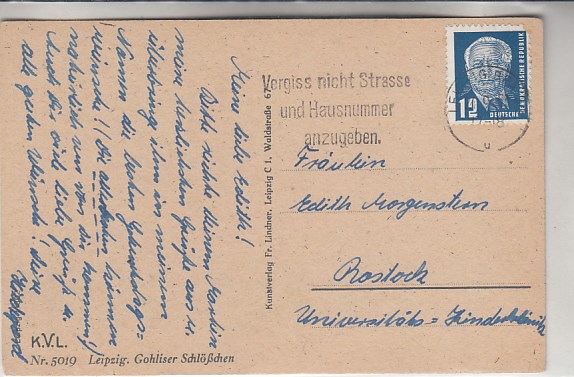 Meine liebe Edith!
Bitte richte Deinem Martin
meine herzlichsten Grüße aus u.
überbring ihm in meinem
Namen die besten Geburtstags-
wünsche!! Die allerbesten können
natürlich nur von Dir kommen!
Auch Dir viel liebe Grüße u.
alle guten Wünsche! Deine
K.V.L.
Nr. 5019 Leipzig. Gohliser Schlößchen
Kunstverlag Fr. Lindner, Leipzig C 1, Waldstraße 67
Vergiss nicht Strasse
und Hausnummer
anzugeben.
12
DEUTSCHE
DEMOKRATISCHE REPUBLIK
Fräulein
Edith Morgenstern
Rostock
Universitäts-Kinderklinik